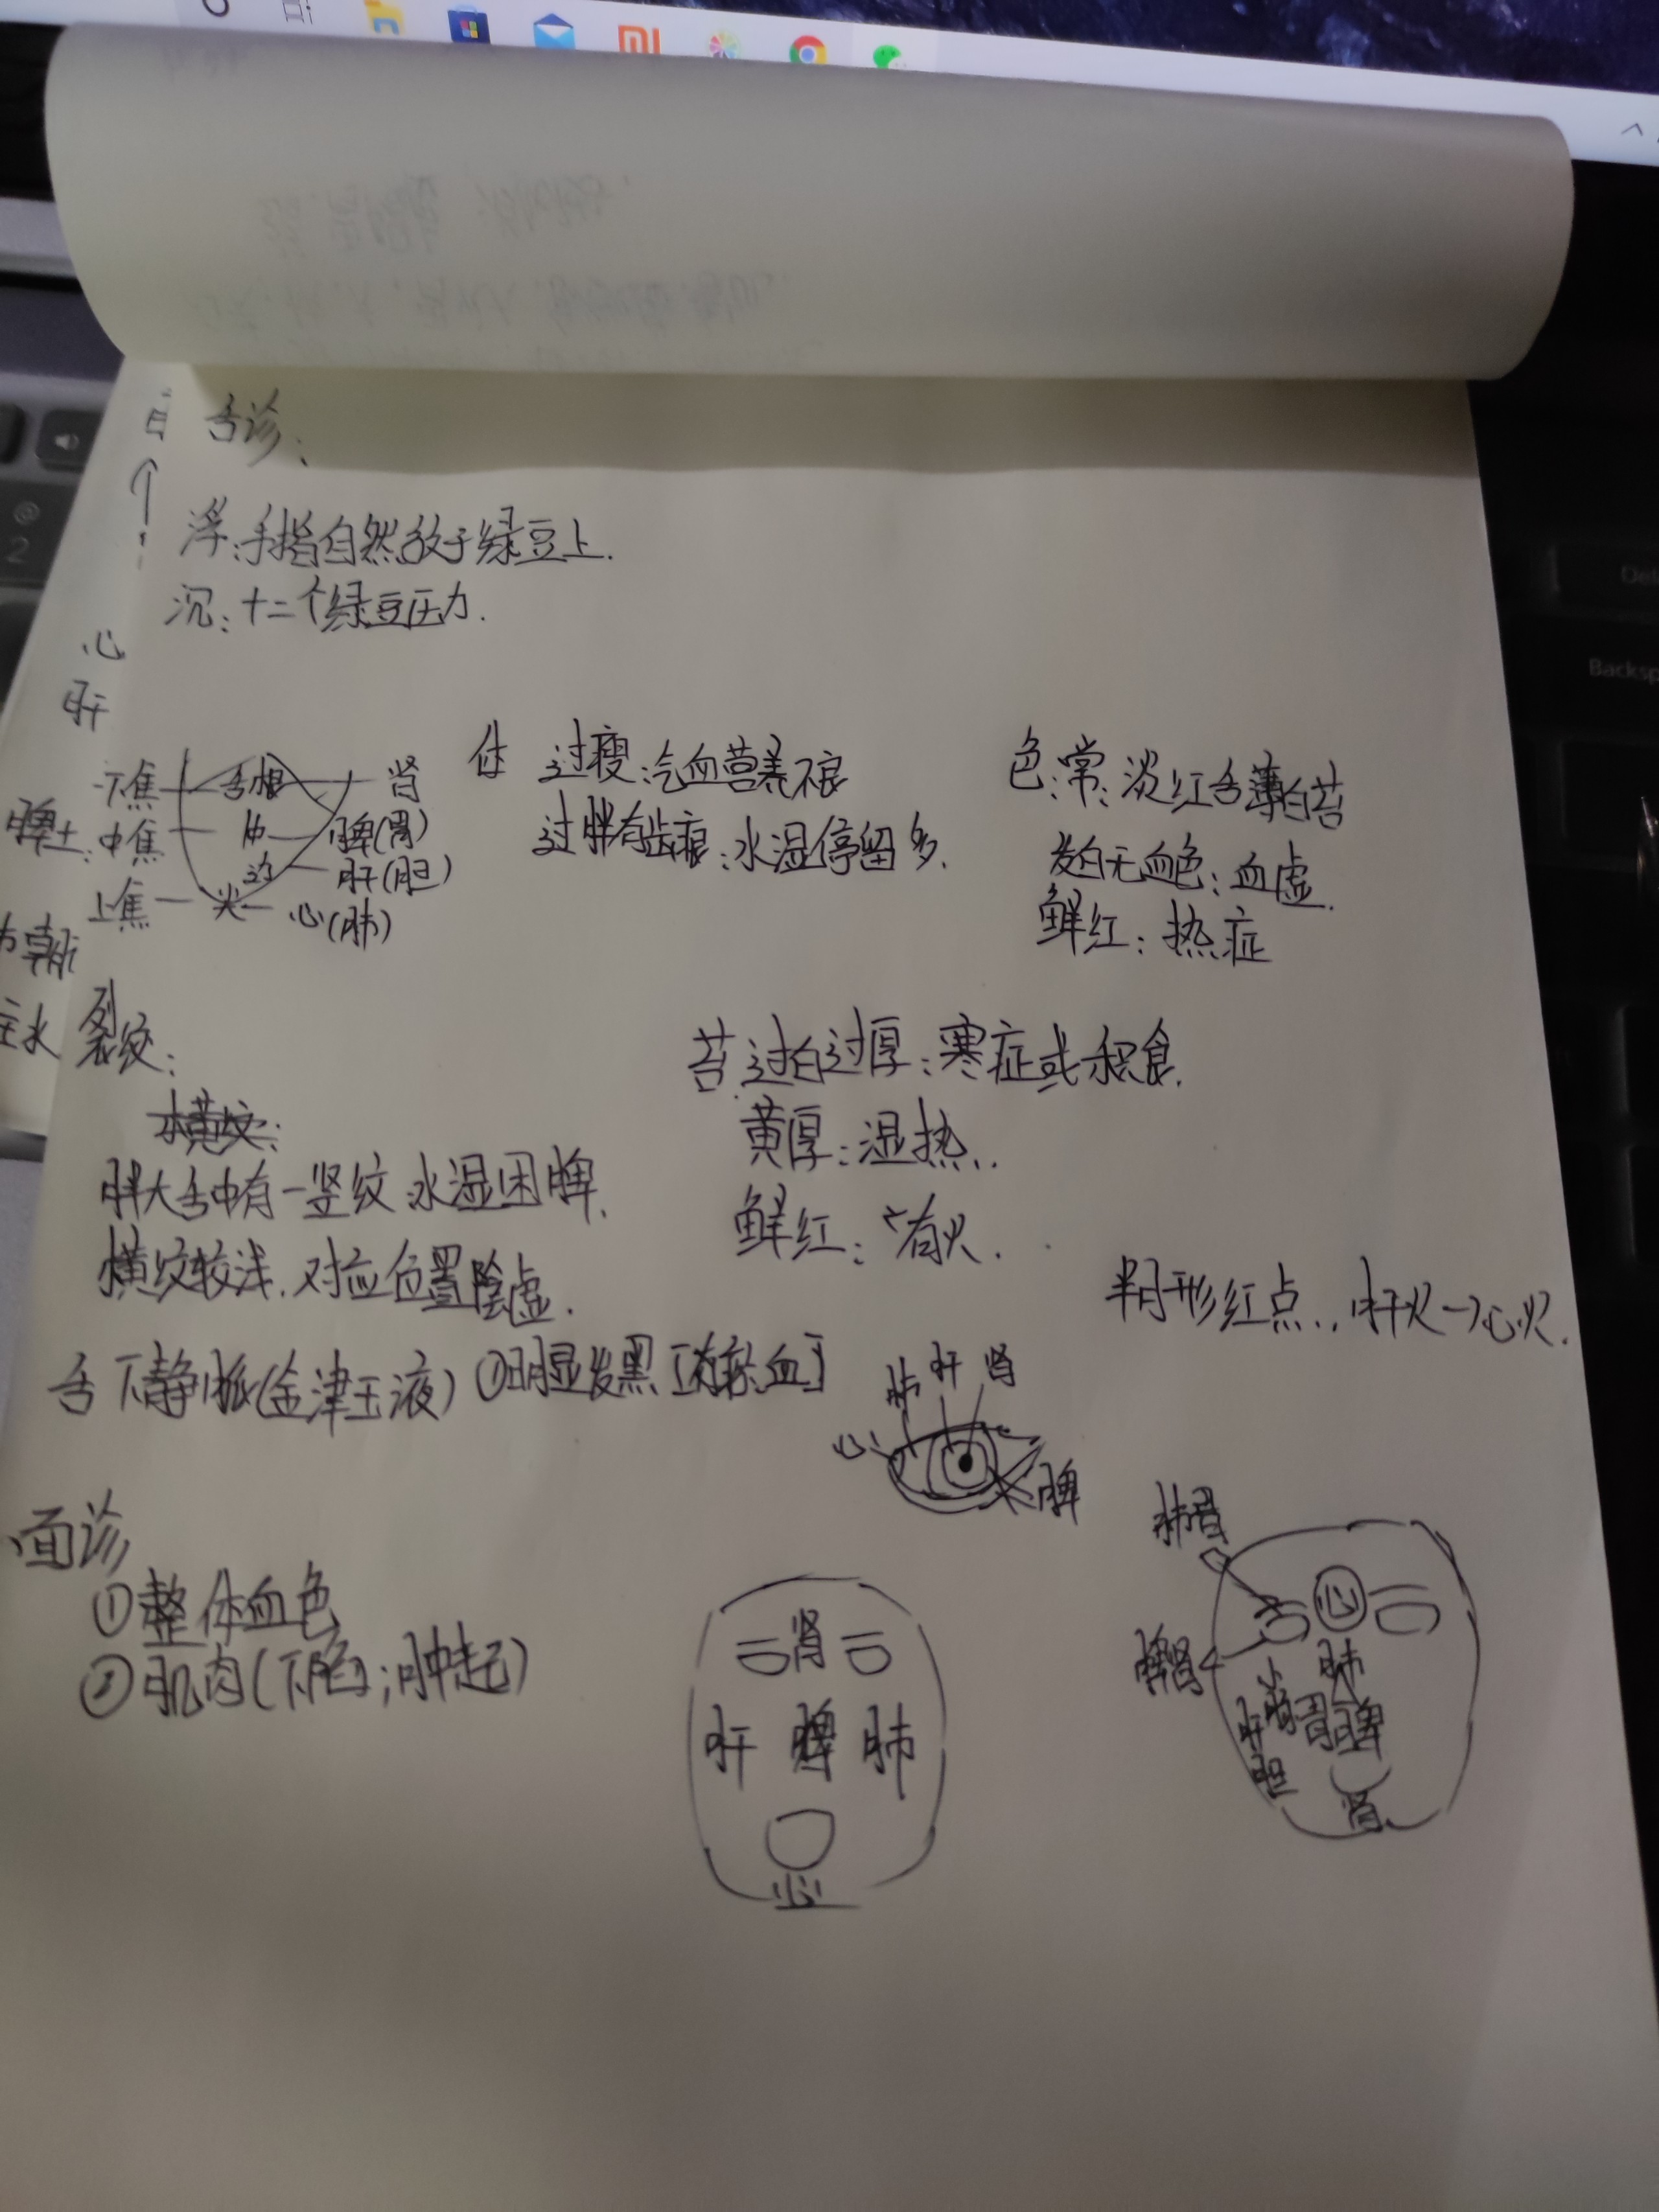 舌诊:
浮:手指自然放于绿豆上.
沉:十二个绿豆压力.
心
肝
下焦 舌根 肾
脾土:中焦 中 脾(胃)
边 肝(胆)
上焦 尖 心(肺)
体 过瘦:气血营养不良
过胖有齿痕:水湿停留多.
色:常:淡红舌薄白苔
发白无血色:血虚.
鲜红:热症
主水
裂纹:
横纹:
胖大舌中有一竖纹 水湿困脾.
横纹较浅.对应位置阴虚.
苔:过白过厚:寒症或积食.
黄厚:湿热.
鲜红:有火.
半月形红点..肝火→心火.
舌下静脉(金津玉液) ①明显发黑[有瘀血]
心 肺 肝 肾
脾
面诊
①整体血色
②肌肉(下陷;肿起)
肾
肝 脾 肺
心
心
肺
小肠 胃 脾
肝胆
肾